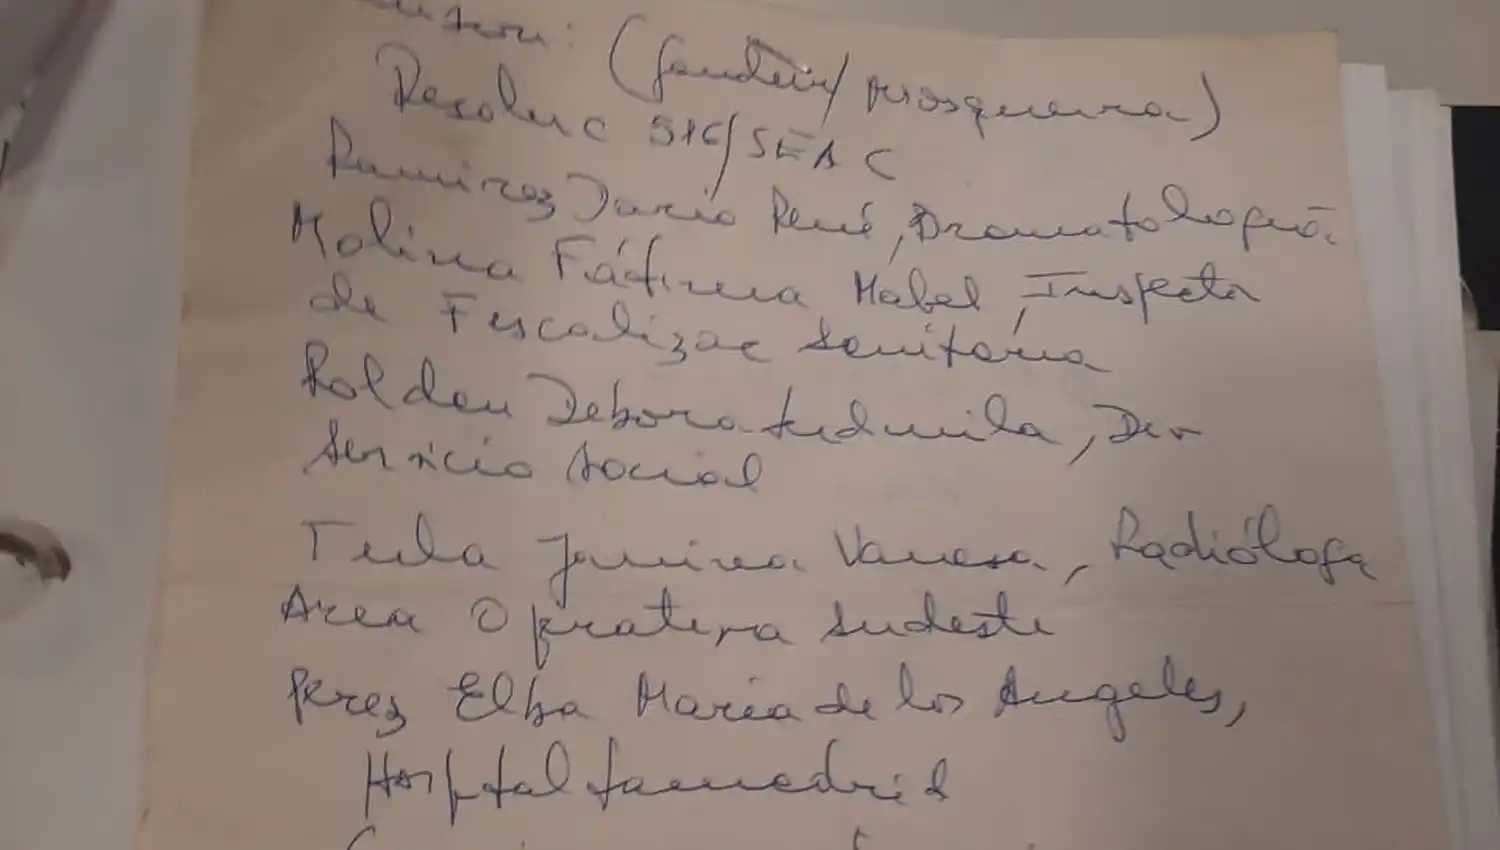 (Gaudein/Mosqueira)
Resoluc 516/SEAC
Ramirez Dario René, Dromatología.
Molina Fátima Mabel, Inspector
de Fiscalizac Sanitaria
Roldan Debora Ludmila, Dir
Servicio Social
Tula Janina Vanesa, Radióloga
Area Operativa Sudeste
Perez Elba Maria de los Angeles,
Hospital